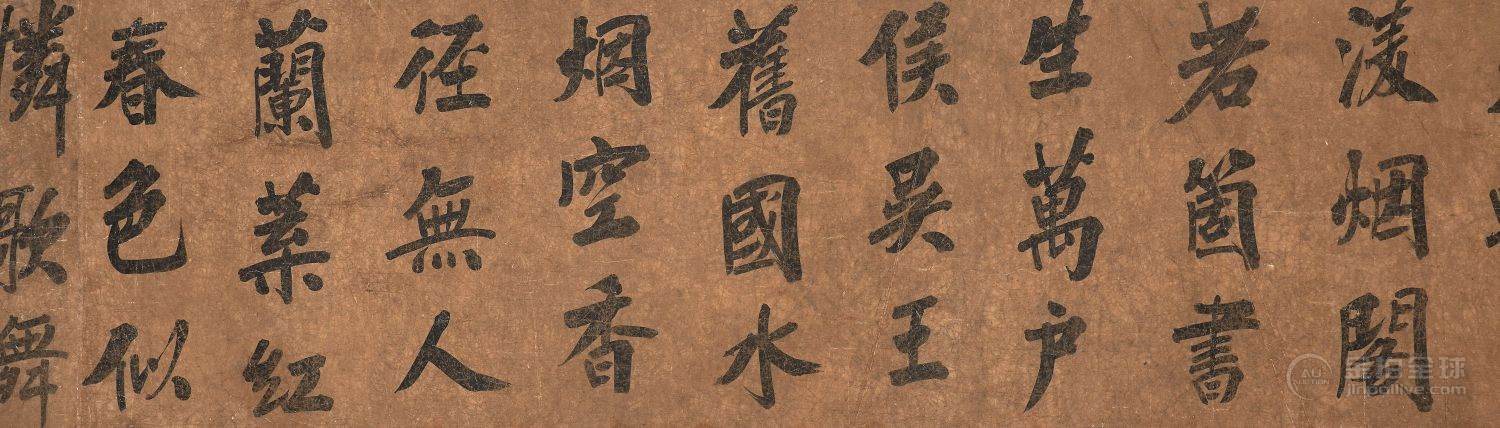 淩烟閣
若箇書
生萬户
侯吳王
舊國水
烟空香
徑無人
蘭葉紅
春色似
憐歌舞
金拍全球
jinpailive.com
AU
AUCTION